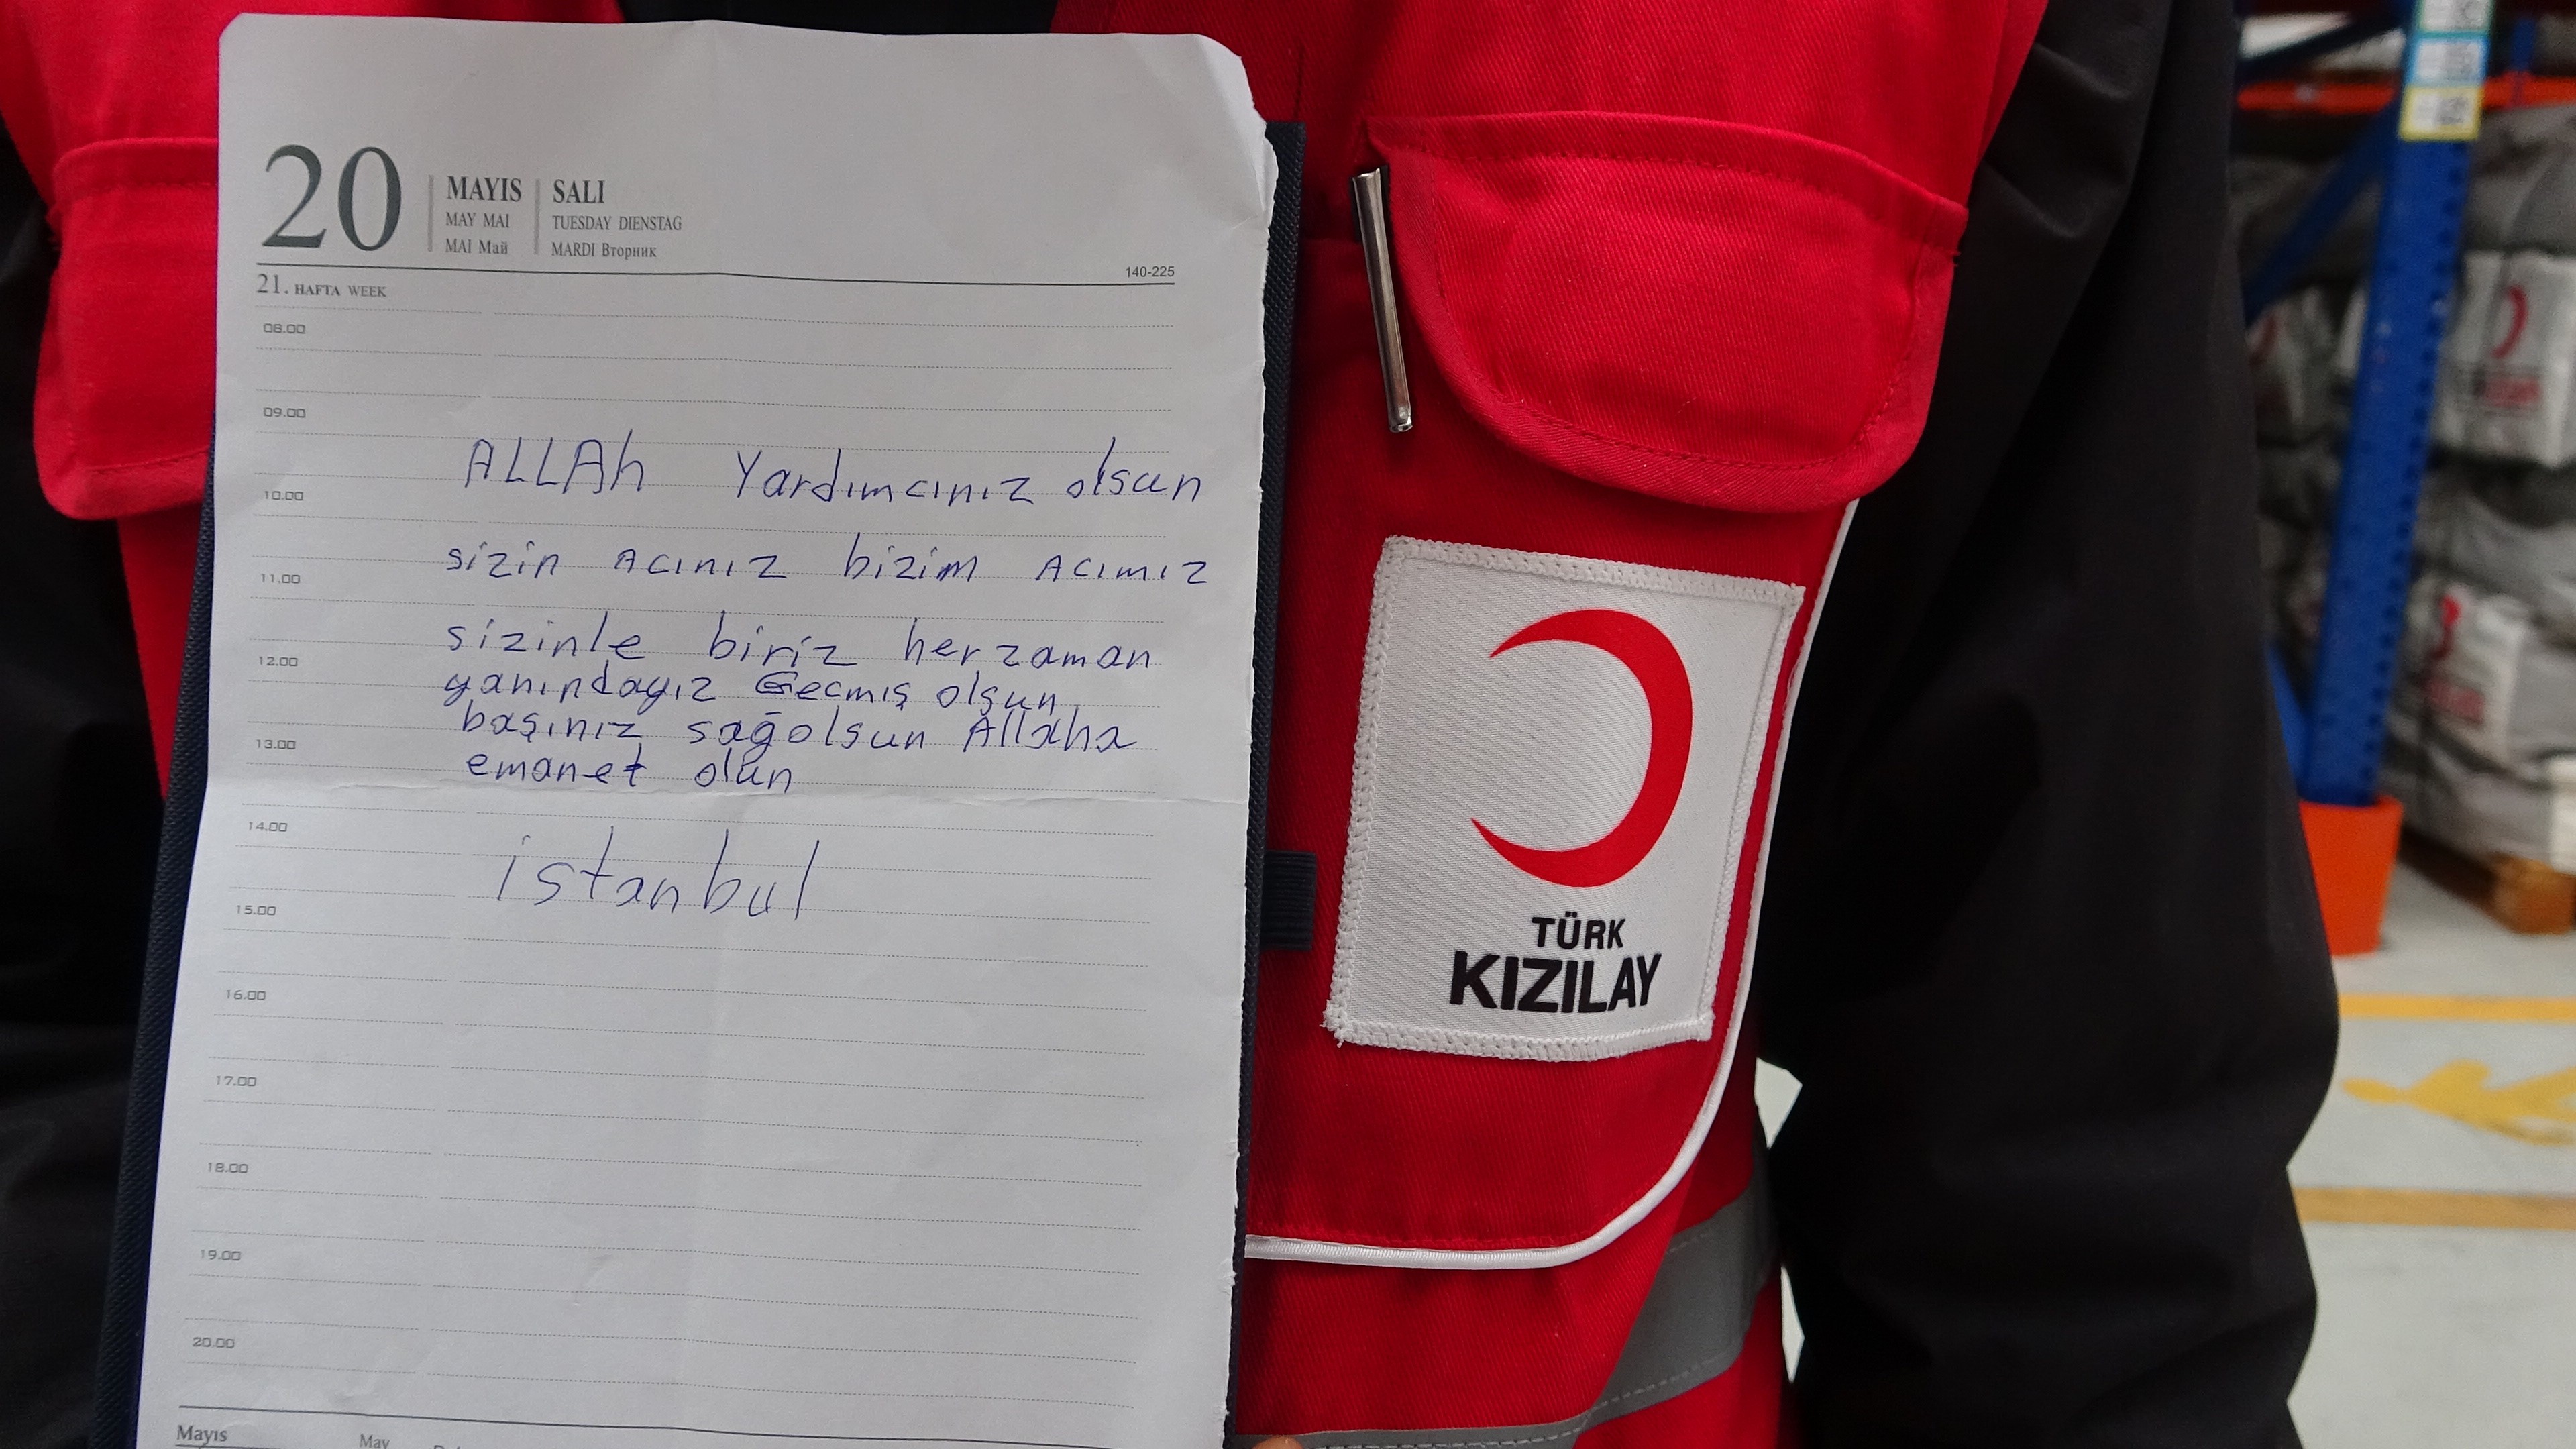 20
MAYIS
MAY MAI
MAI Май
SALI
TUESDAY DIENSTAG
MARDI Вторник
140-225
21. HAFTA WEEK
08.00
09.00
ALLAh Yardımcınız olsun
10.00
sizin Acınız bizim Acımız
11.00
sizinle biriz herzaman
12.00
yanındayız Gecmiş olsun
başınız sağolsun Allaha
13.00
emanet olun
14.00
istanbul
15.00
16.00
17.00
18.00
19.00
20.00
Mayıs
May
TÜRK
KIZILAY